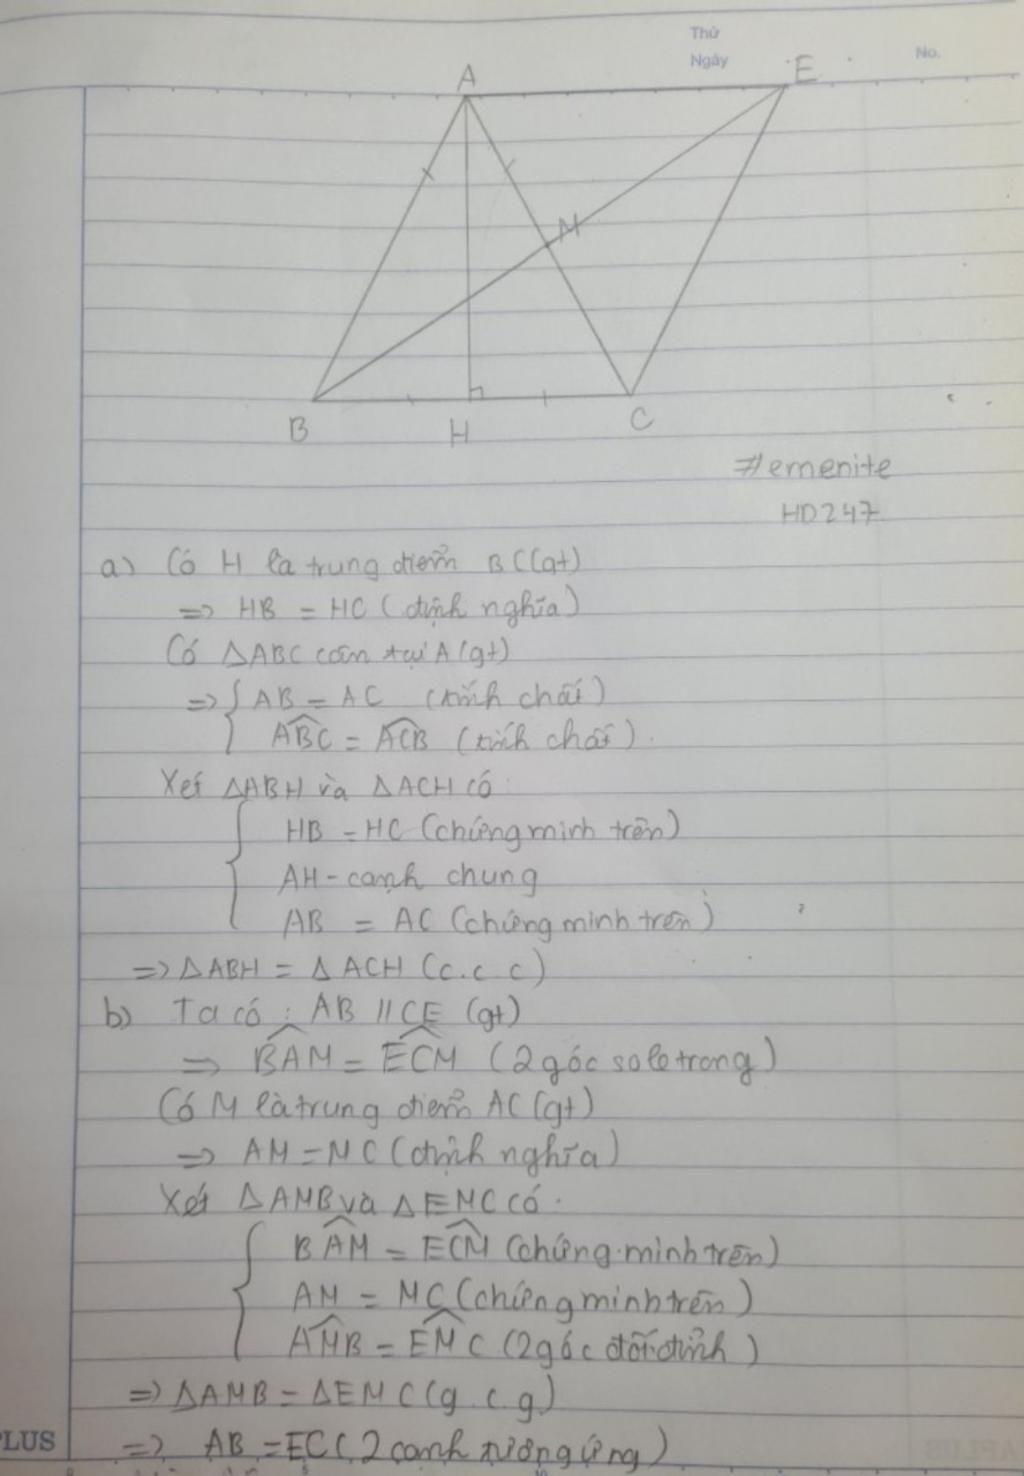 Thứ
Ngày
No.
A
E
M
B
H
C
#emenite
HD247
a) Có H là trung điểm BC (gt)
=> HB = HC (định nghĩa)
Có ΔABC cân tại A (gt)
=> { AB = AC (tính chất)
\widehat{ABC} = \widehat{ACB} (tính chất).
Xét ΔABH và ΔACH có:
{ HB = HC (chứng minh trên)
AH - cạnh chung
AB = AC (chứng minh trên)
=> ΔABH = ΔACH (c.c.c)
b) Ta có: AB // CE (gt)
=> \widehat{BAM} = \widehat{ECM} (2 góc so le trong)
Có M là trung điểm AC (gt)
=> AM = MC (định nghĩa)
Xét ΔAMB và ΔEMC có.
{ \widehat{BAM} = \widehat{ECM} (chứng minh trên)
AM = MC (chứng minh trên)
\widehat{AMB} = \widehat{EMC} (2 góc đối đỉnh)
=> ΔAMB = ΔEMC (g.c.g)
PLUS => AB = EC (2 cạnh tương ứng)